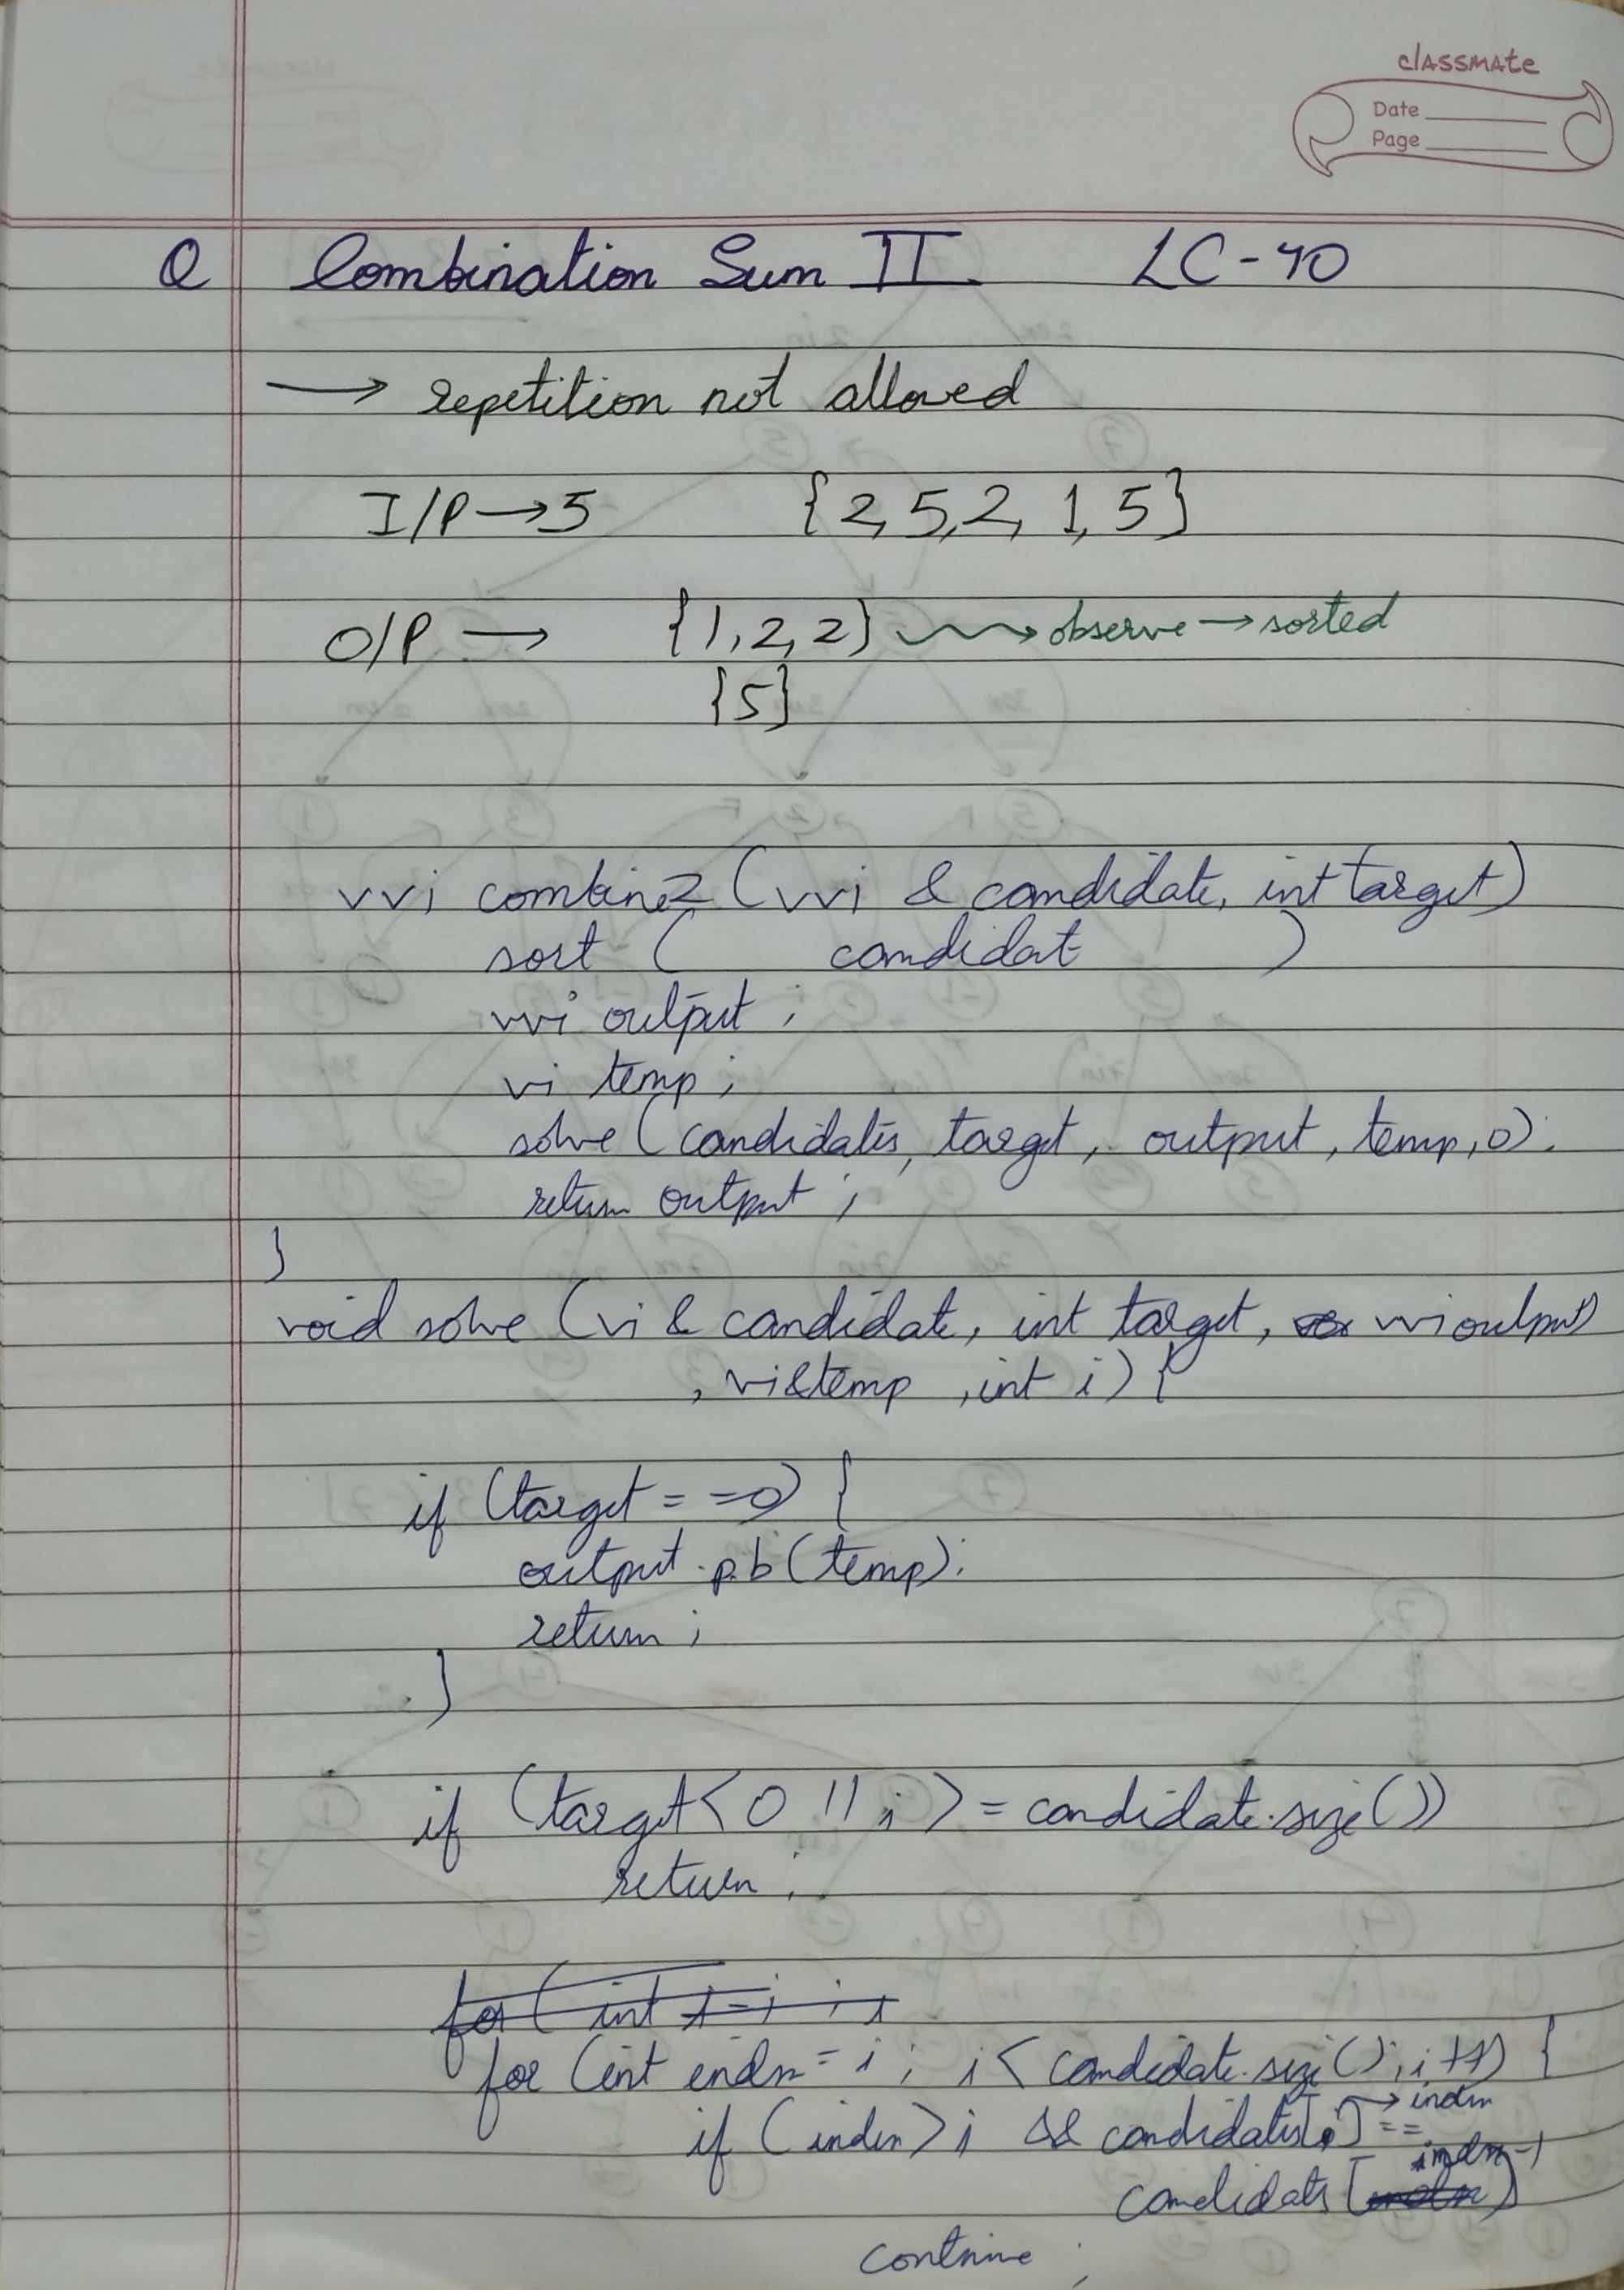 classmate
Date
Page
Q Combination Sum II LC-40
→ repetition not allowed
I/P → 5 {2,5,2, 1,5}
O/P → {1,2,2} → observe → sorted
{5}
vvi combine2 (vvi & candidate, int target)
sort ( candidat )
vvi output ;
vi temp ;
solve (candidates, target, output, temp, 0);
return output ;
}
void solve (vi & candidate, int target, vvi output
, vi&temp , int i) {
if (target == 0) {
output.pb(temp);
return ;
}
if (target < 0 || i >= candidate.size())
return ;
for ( int i = i ; i
for (int endx = i ; i < candidate.size(); i++) {
if (index > i && candidates[i] == → index
candidats [index-1]
continue ;